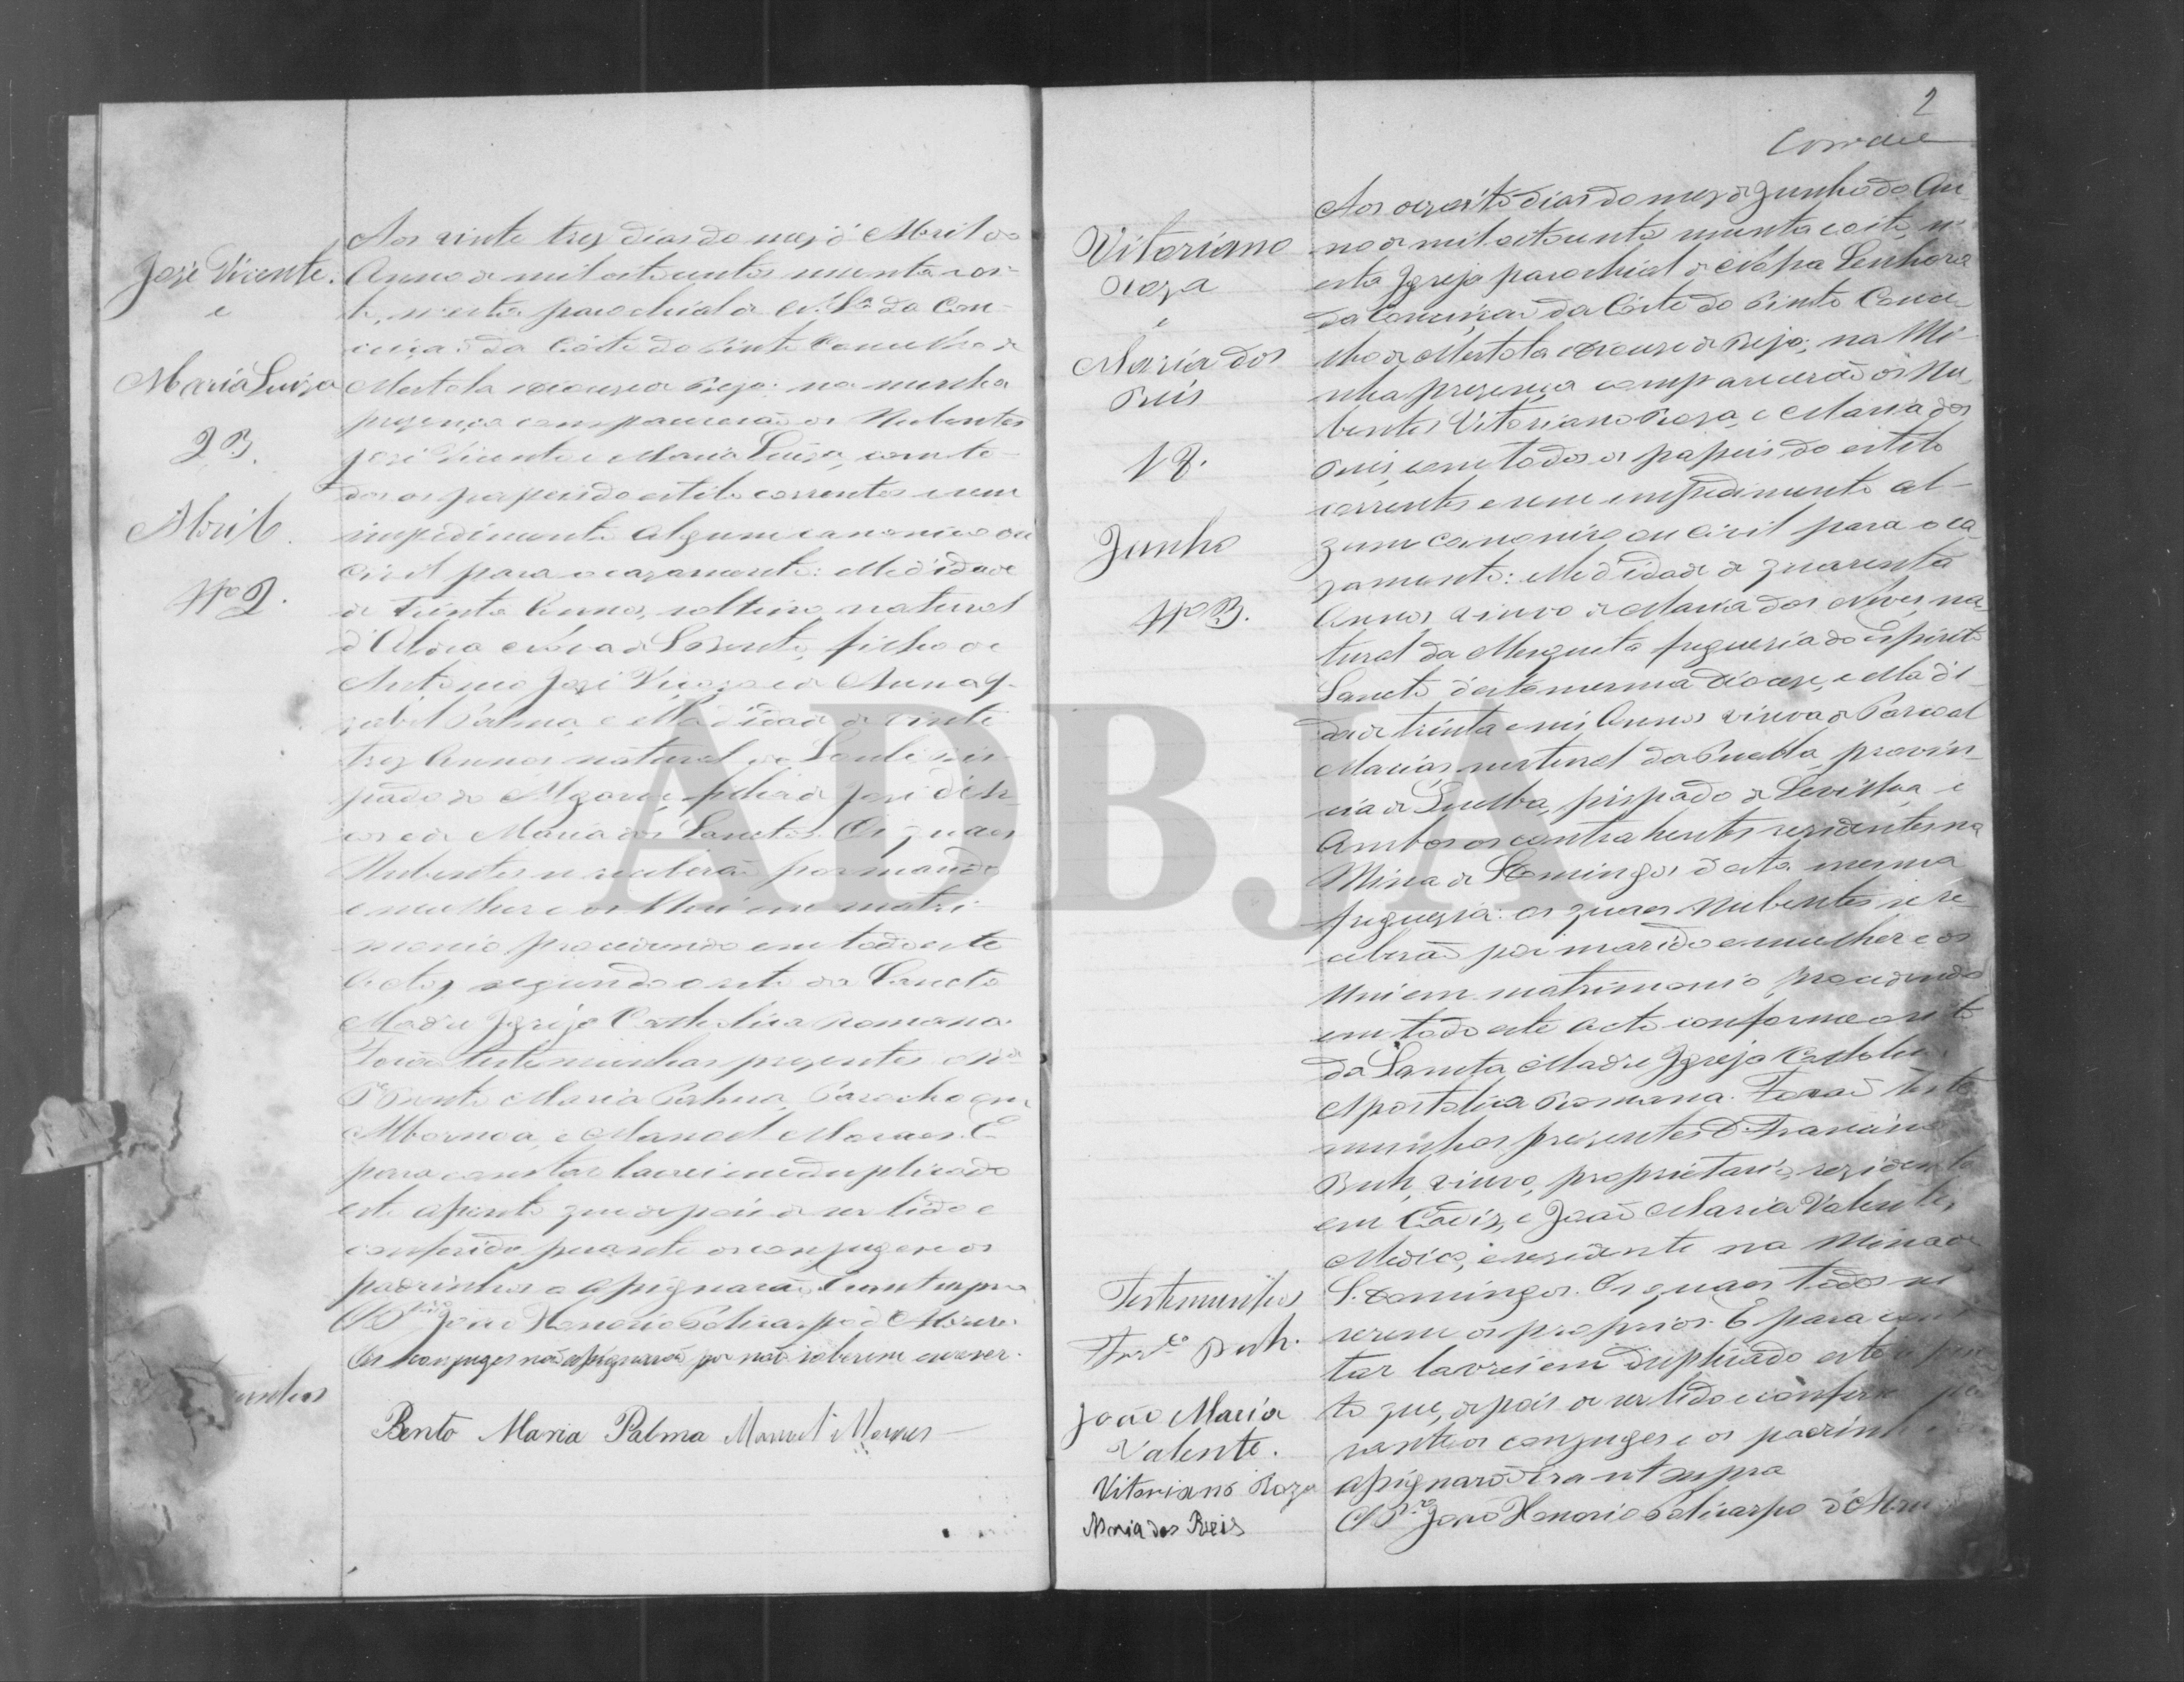 José Vicente.
e
Maria Luiza
23.
Abril.
Nº 2.
Aos vinte trez dias do mez d'Abril do
Anno de mil oitocentos noventa e oi-
to, n'esta parochial de N. Sra da Con-
ceição da Côrte do Pinto Concelho de
Mertola e diocese de Beja: na minha
prezença compareceram os Nubentes
José Vicente e Maria Luiza, com to-
dos os papeis do estilo correntes e sem
impedimento algum canonico ou
civil para o cazamento: Elle d'idade
de trinta Annos, solteiro, natural
d'Aldea Nova de S. Bento, filho de
Antonio José e de Anna
Palma, e Ella d'idade de vinte
trez Annos natural de Loulé bis-
pado do Algarve, filha de José
e de Maria dos Sanctos. Os quaes
Nubentes se receberão por marido
e mulher e os Uni em matri-
monio procedendo em todo este
acto, segundo o rito da Sancta
Madre Igreja Catholica romana.
Forão testemunhas prezentes
Bento Maria Palma, Parocho em
Albernoa, e Manoel Moraes. E
para constar lavrei em duplicado
este assento que depois de ser lido e
conferido perante os conjuges e os
padrinhos o assignarão. Era ut supra
O Pe João Honorio Policarpo d'Abreu.
Os conjuges não assignarão por não saberem escrever.
Bento Maria Palma Manoel Moraes
2
Vitoriano
Roza
e
Maria dos
Reis
18.
Junho
Nº 3.
Testemunhas
João Maria
Valente.
Vitoriano Roza
Maria dos Reis
Aos dezoito dias do mez de Junho do An-
no de mil oitocentos noventa e oito, n'-
esta Igreja parochial de Nossa Senhora
da Conceição da Côrte do Pinto Conce-
lho de Mertola e diocese de Beja; na Mi-
nha prezença comparecerão os Nu-
bentes Vitoriano Roza, e Maria dos
Reis, com todos os papeis do estilo
correntes e sem impedimento al-
gum canonico ou civil para o ca-
zamento: Elle d'idade de quarenta
Annos viuvo de Maria das Neves, na-
tural da Mesquita freguezia do Espirito
Sancto d'esta mesma diocese, e Ella d'i-
dade de trinta e seis Annos viuva de Pascoal
Macias, natural da Puebla, provin-
cia de Huelba, bispado de Sevilha, e
Ambos os contrahentes rezidentes na
Mina de S. Domingos d'esta mesma
freguezia: os quaes Nubentes se re-
ceberão por marido e mulher e os
Uni em matrimonio, procedendo
em todo este acto conforme o rito
da Sancta Madre Igreja Catholica
Apostolica Romana. Forão teste-
munhas prezentes D. Francisco
viuvo, proprietario, rezidente
em Cadiz, e João Maria Valente,
Medico, e rezidente na Mina de
S. Domingos. Os quaes todos
serem os proprios. E para cons-
tar lavrei em duplicado este assen-
to que, depois de ser lido e conferido pe-
rante os conjuges e os padrinhos
assignarão. Era ut supra
O Pe João Honorio Policarpo d'Abreu
ADBJA